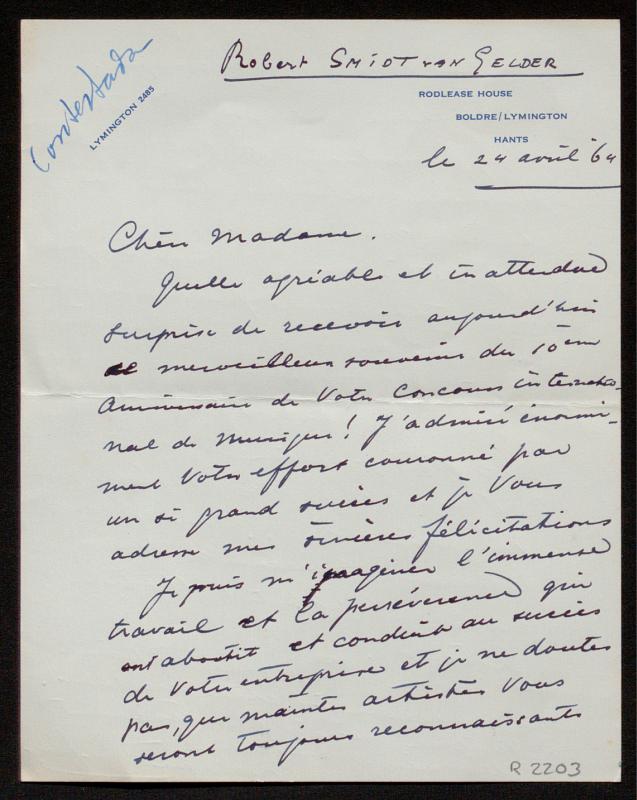 Contestada
LYMINGTON 2485
Robert SMIDT VAN GELDER
RODLEASE HOUSE
BOLDRE/LYMINGTON
HANTS
le 24 avril '64
Chère Madame.
Quelle agréable et inattendue
surprise de recevoir aujourd'hui
ce merveilleux souvenir du 10ème
Anniversaire de Votre Concours internatio-
nal de musique! J'admire énormé-
ment Votre effort couronné par
un si grand succès et je Vous
adresse mes sincères félicitations
Je puis m'imaginer l'immense
travail et la persévérance qui
ont aboutit et conduit au succès
de Votre entreprise et je ne doutes
pas, que maintes artistes Vous
seront toujours reconnaissants
R 2203